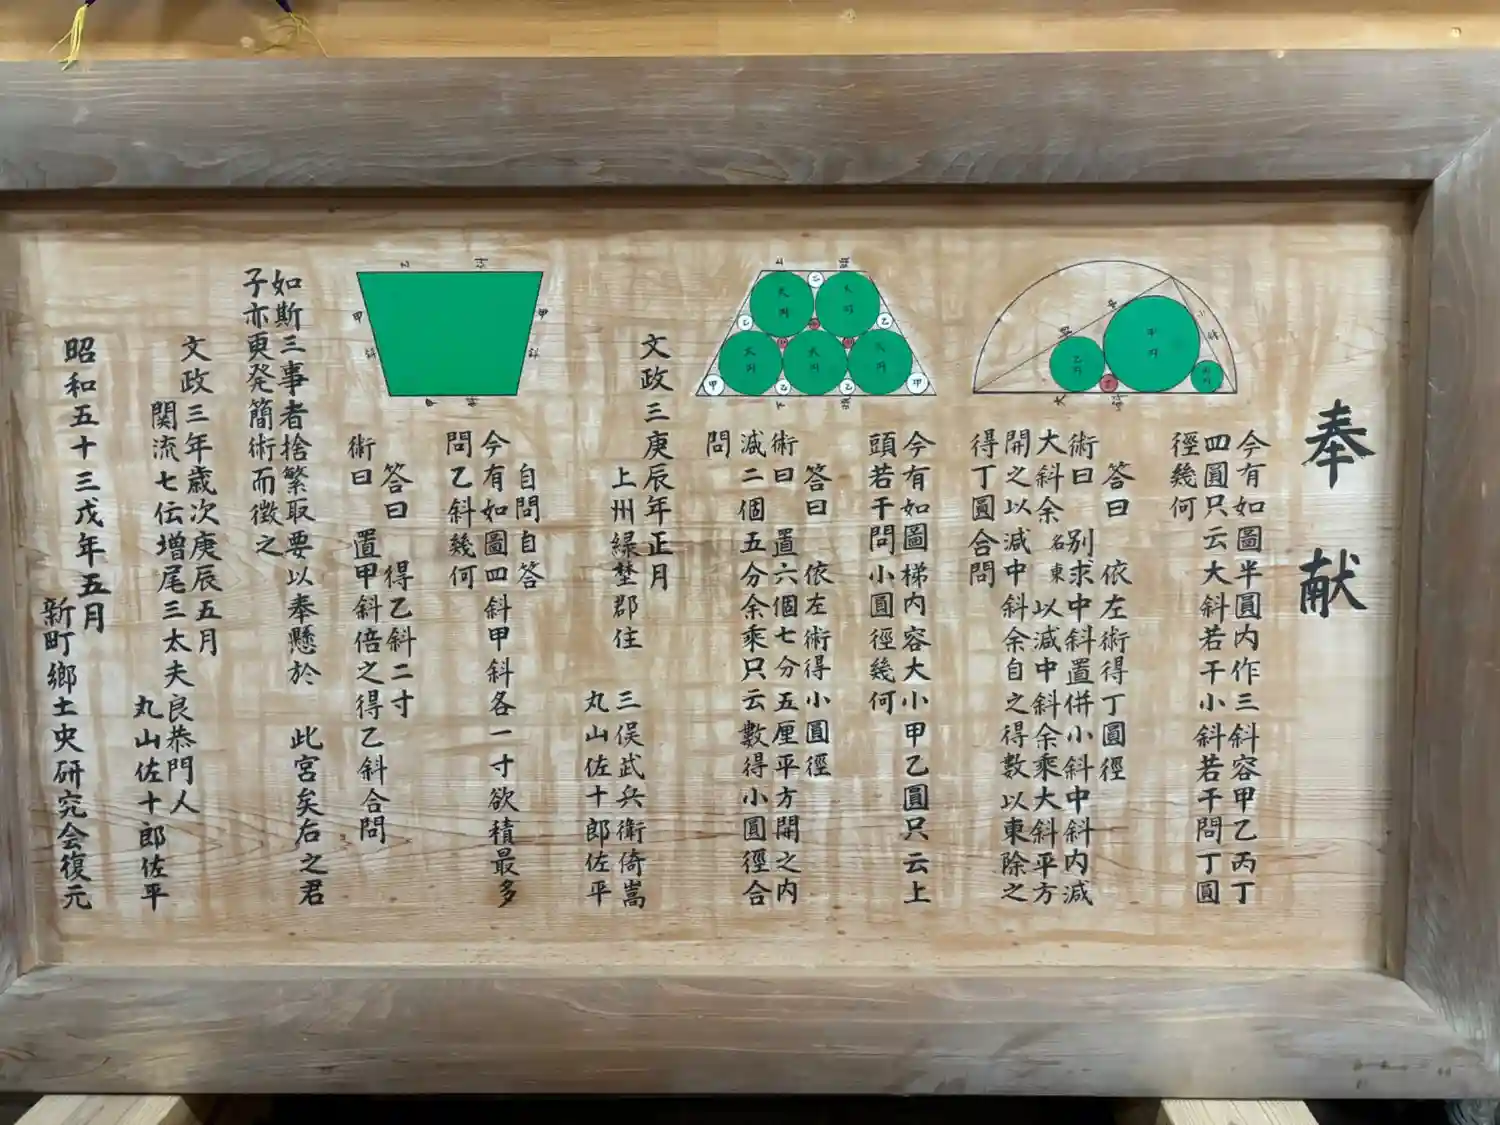 奉献
今有如圖半圓内作三斜容甲乙丙丁
四圓只云大斜若干小斜若干問丁圓
徑幾何
答曰 依左術得丁圓徑
術曰 別求中斜置併小斜中斜内減
大斜余名東以減中斜余乘大斜平方
開之以減中斜余自之得数以東除之
得丁圓合問
今有如圖梯内容大小甲乙圓只云上
頭若干問小圓徑幾何
答曰 依左術得小圓徑
術曰 置六個七分五厘平方開之内
減二個五分余乘只云數得小圓徑合
問
文政三庚辰年正月
上州緑埜郡住 三俣武兵衛倚嵩
丸山佐十郎佐平
自問自答
今有如圖四斜甲斜各一寸欲積最多
問乙斜幾何
答曰 得乙斜二寸
術曰 置甲斜倍之得乙斜合問
如斯三事者捨繁取要以奉懸於 此宮矣右之君
子亦更発簡術而徴之
文政三年歳次庚辰五月
関流七伝増尾三太夫良恭門人
丸山佐十郎佐平
昭和五十三戊年五月
新町郷土史研究会復元